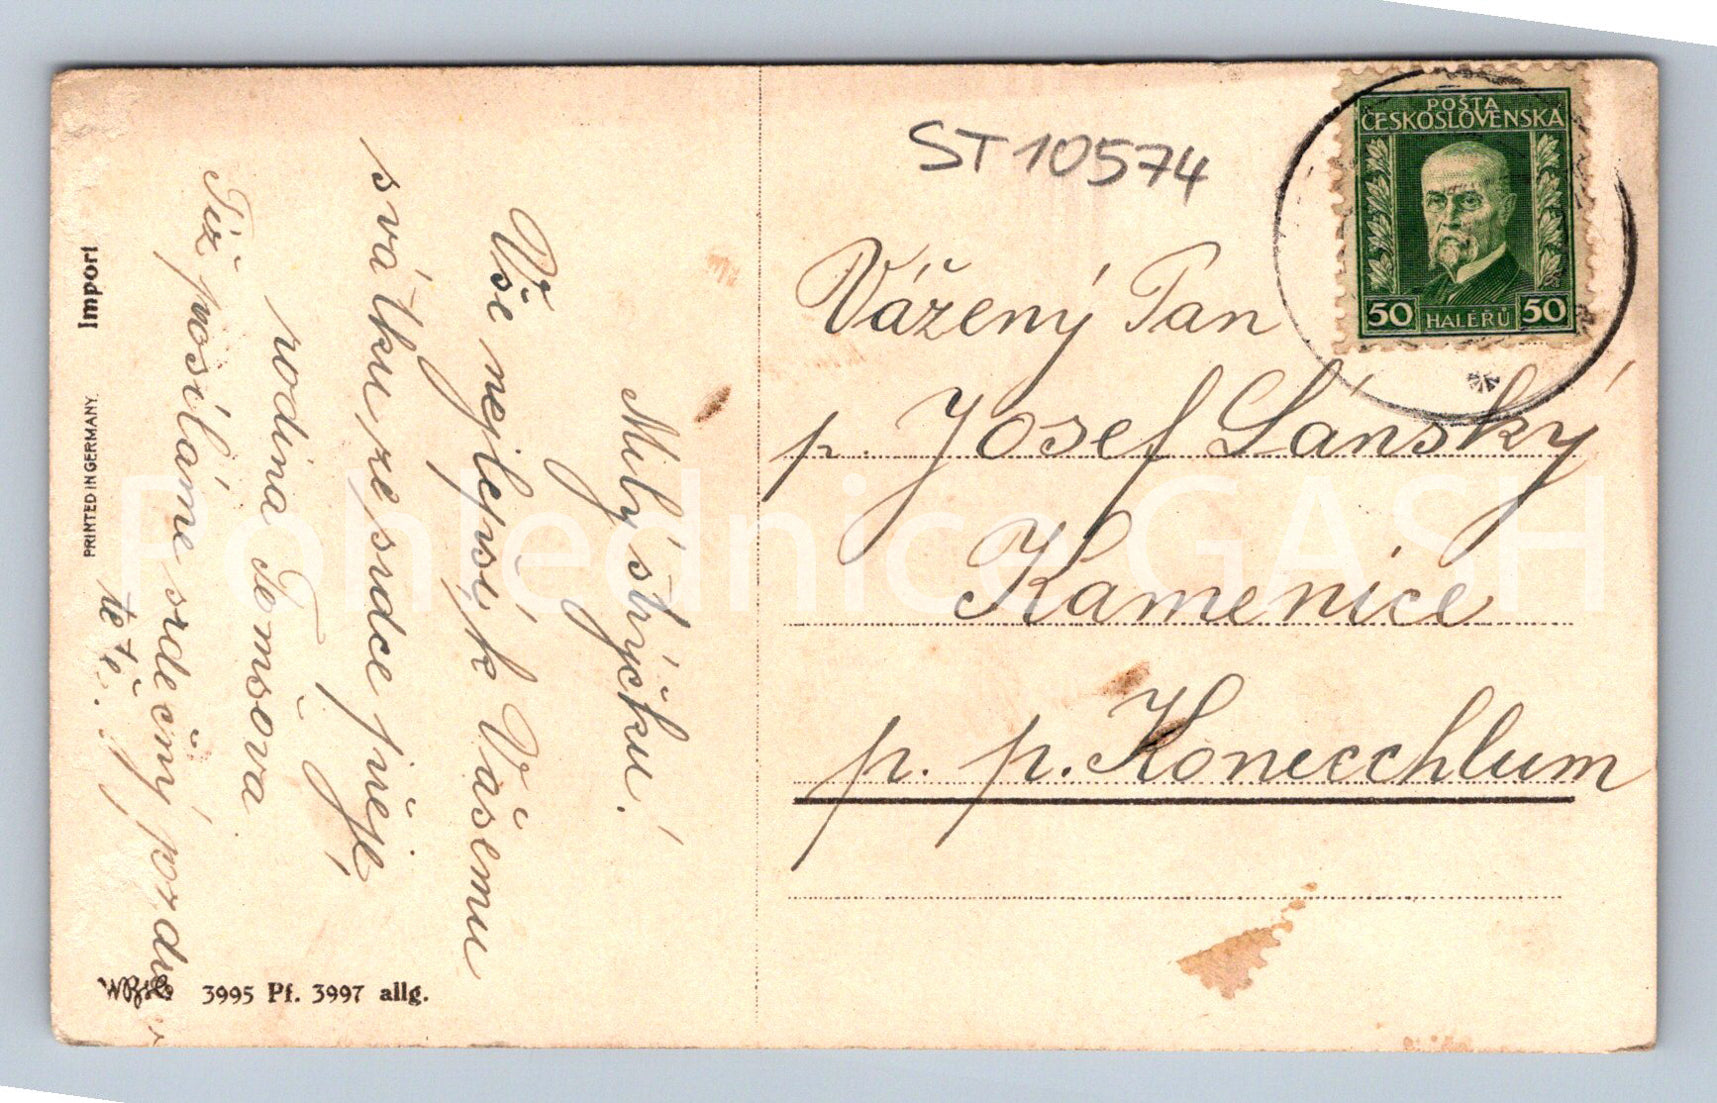 Milý strýčku!
Vše nejlepší k Vašemu
svátku ze srdce přeje
rodina Tomšova
Též posíláme srdečný pozdrav
tetě.
Import
PRINTED IN GERMANY.
3995 Pf. 3997 allg.
ST10574
POŠTA
ČESKOSLOVENSKÁ
50 HALÉŘŮ 50
Vážený Pan
p. Josef Lánský
Kamenice
p. p. Konecchlum
Pohlednice GASH